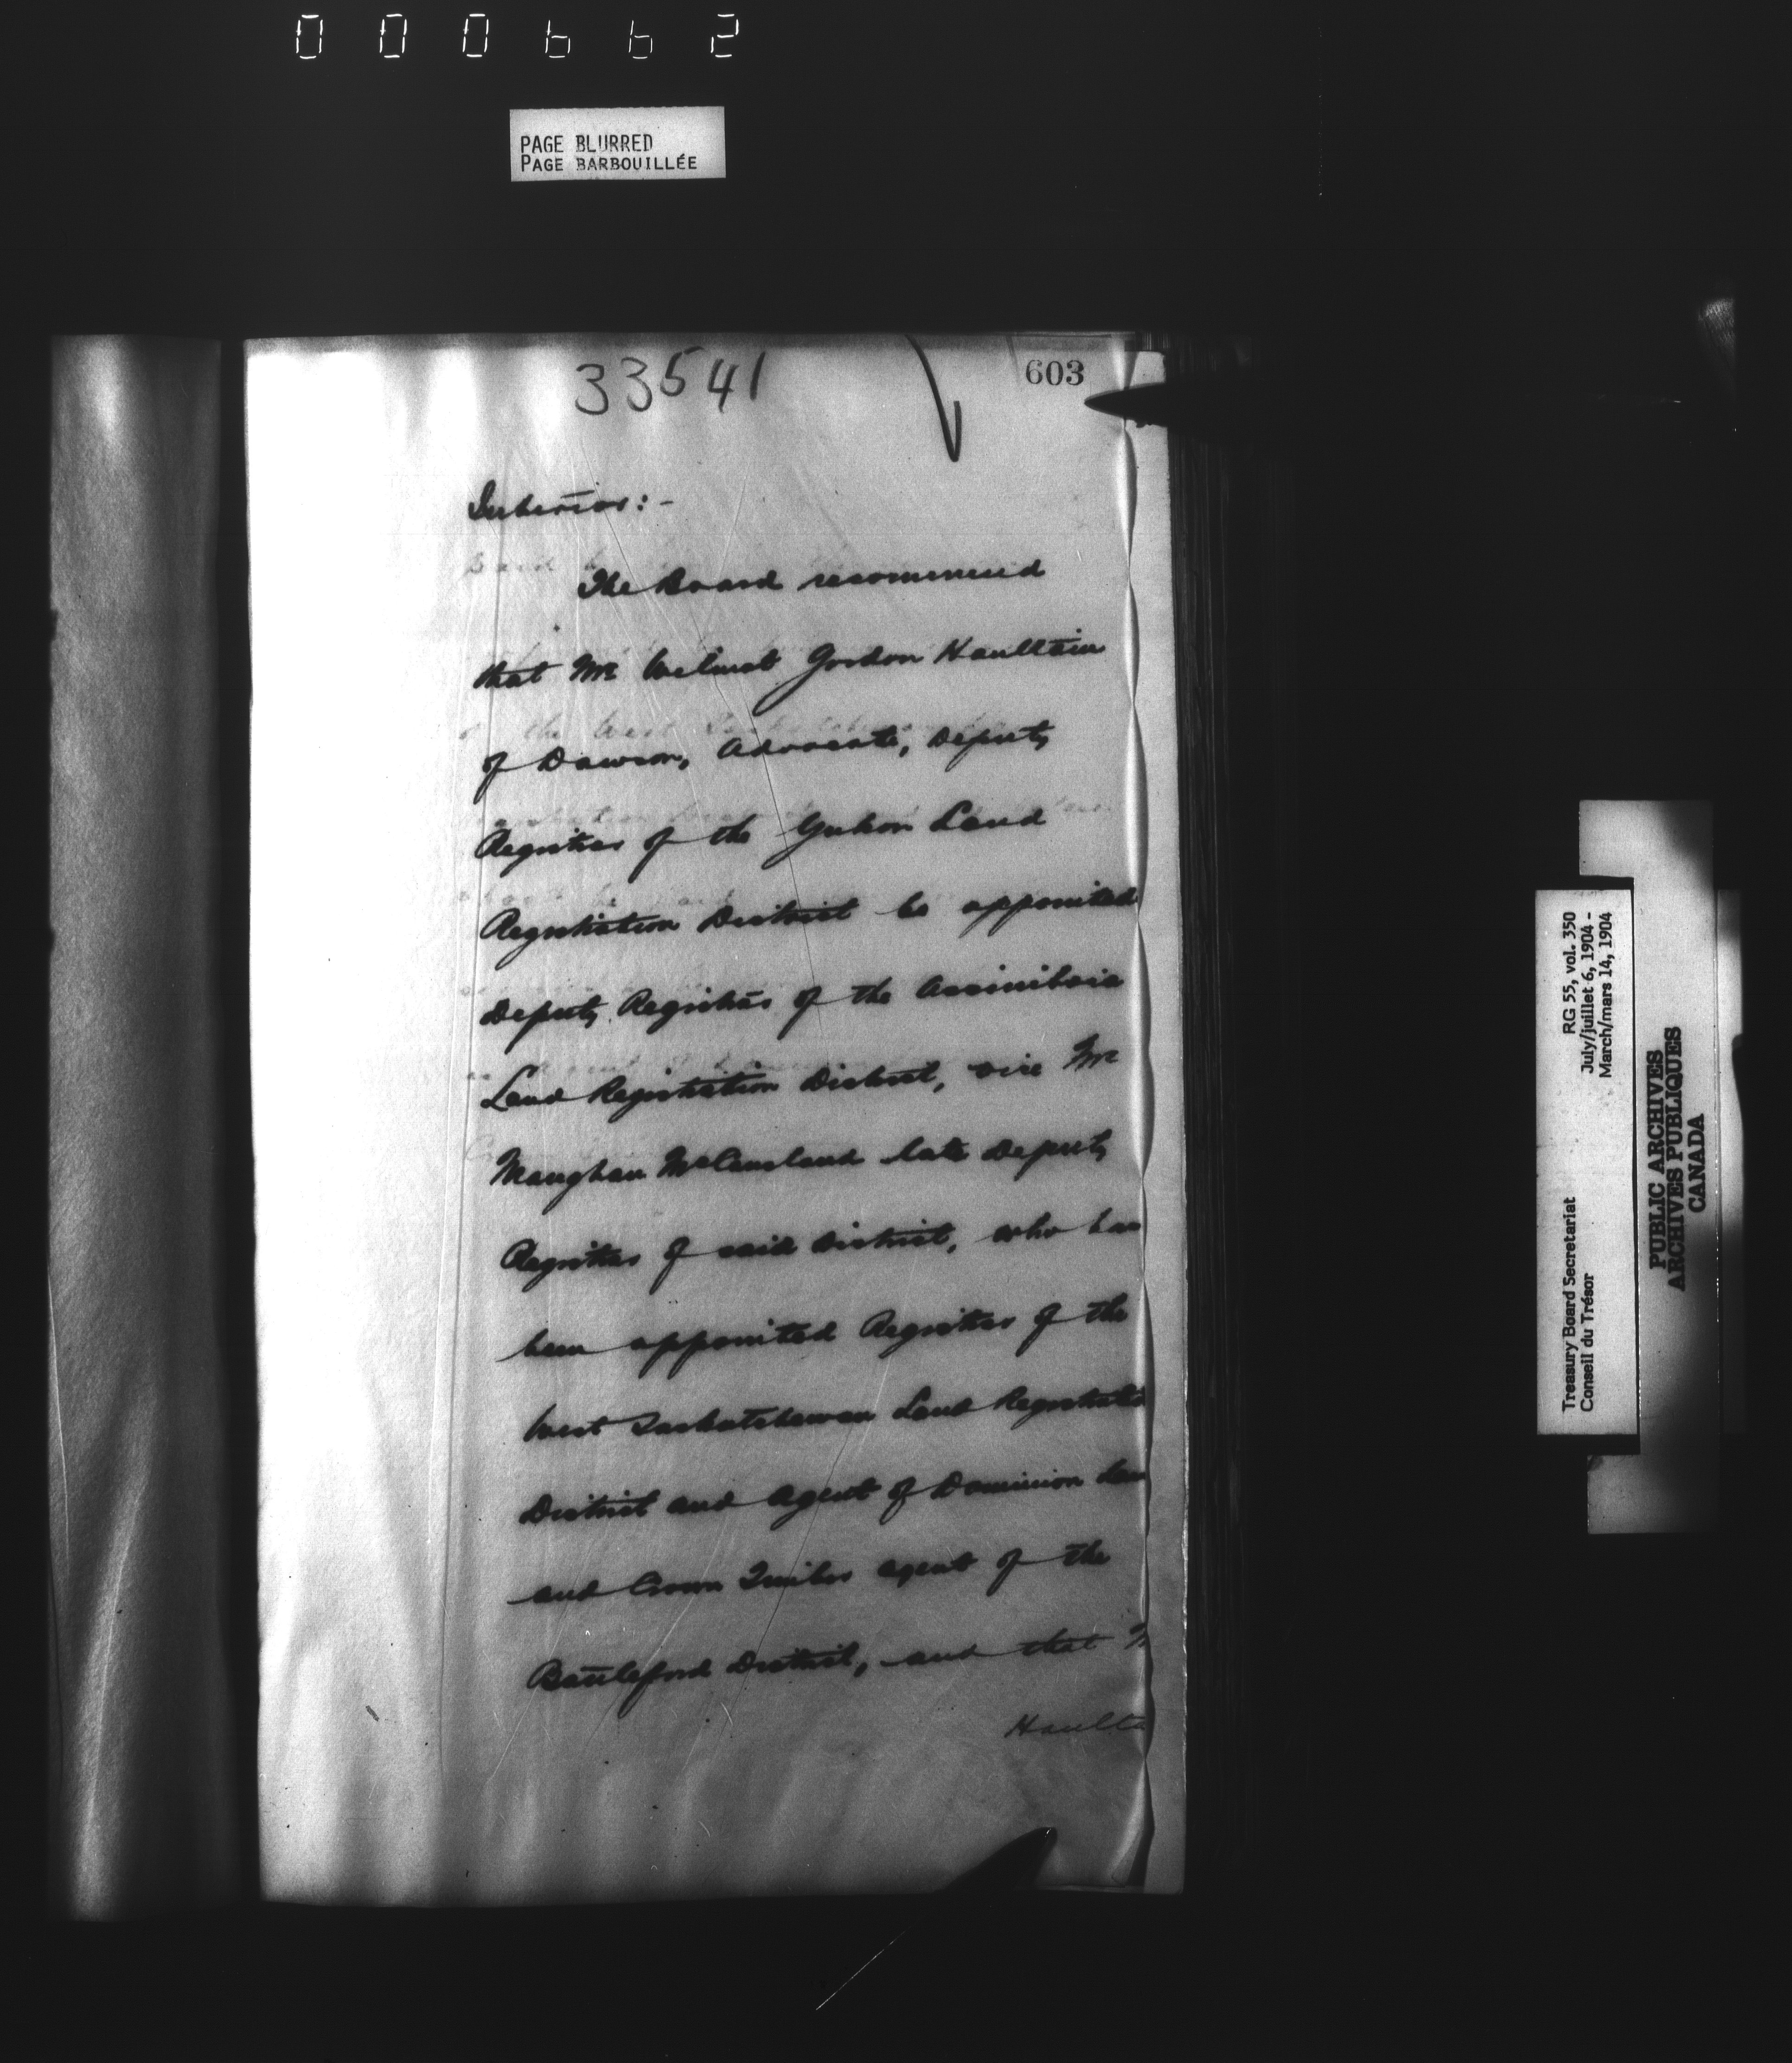 000662
PAGE BLURRED
PAGE BARBOUILLÉE
33541
603
Interior:-
The Board recommend
that Mr Wilmot Gordon Haultain
of Dawson, Advocate, Deputy
Registrar of the Yukon Land
Registration District be appointed
Deputy Registrar of the Assiniboia
Land Registration District, vice Mr
Maughan McCausland late Deputy
Registrar of said District, who has
been appointed Registrar of the
West Saskatchewan Land Registratio
District and Agent of Dominion Lan
and Crown Timber agent of the
Battleford District, and that M
Haulta
Treasury Board Secretariat RG 55, vol. 350
Conseil du Trésor July/juillet 6, 1904 -
March/mars 14, 1904
PUBLIC ARCHIVES
ARCHIVES PUBLIQUES
CANADA